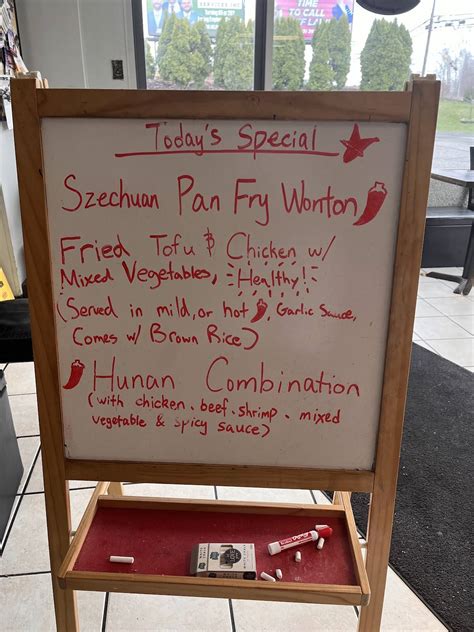 SERVICES INC
TIME TO
CALL
Today's Special
Szechuan Pan Fry Wonton
Fried Tofu & Chicken w/
Mixed Vegetables, Healthy!
(Served in mild, or hot, Garlic Sauce,
Comes w/ Brown Rice)
Hunan Combination
(with chicken. beef. shrimp. mixed
vegetable & spicy sauce)